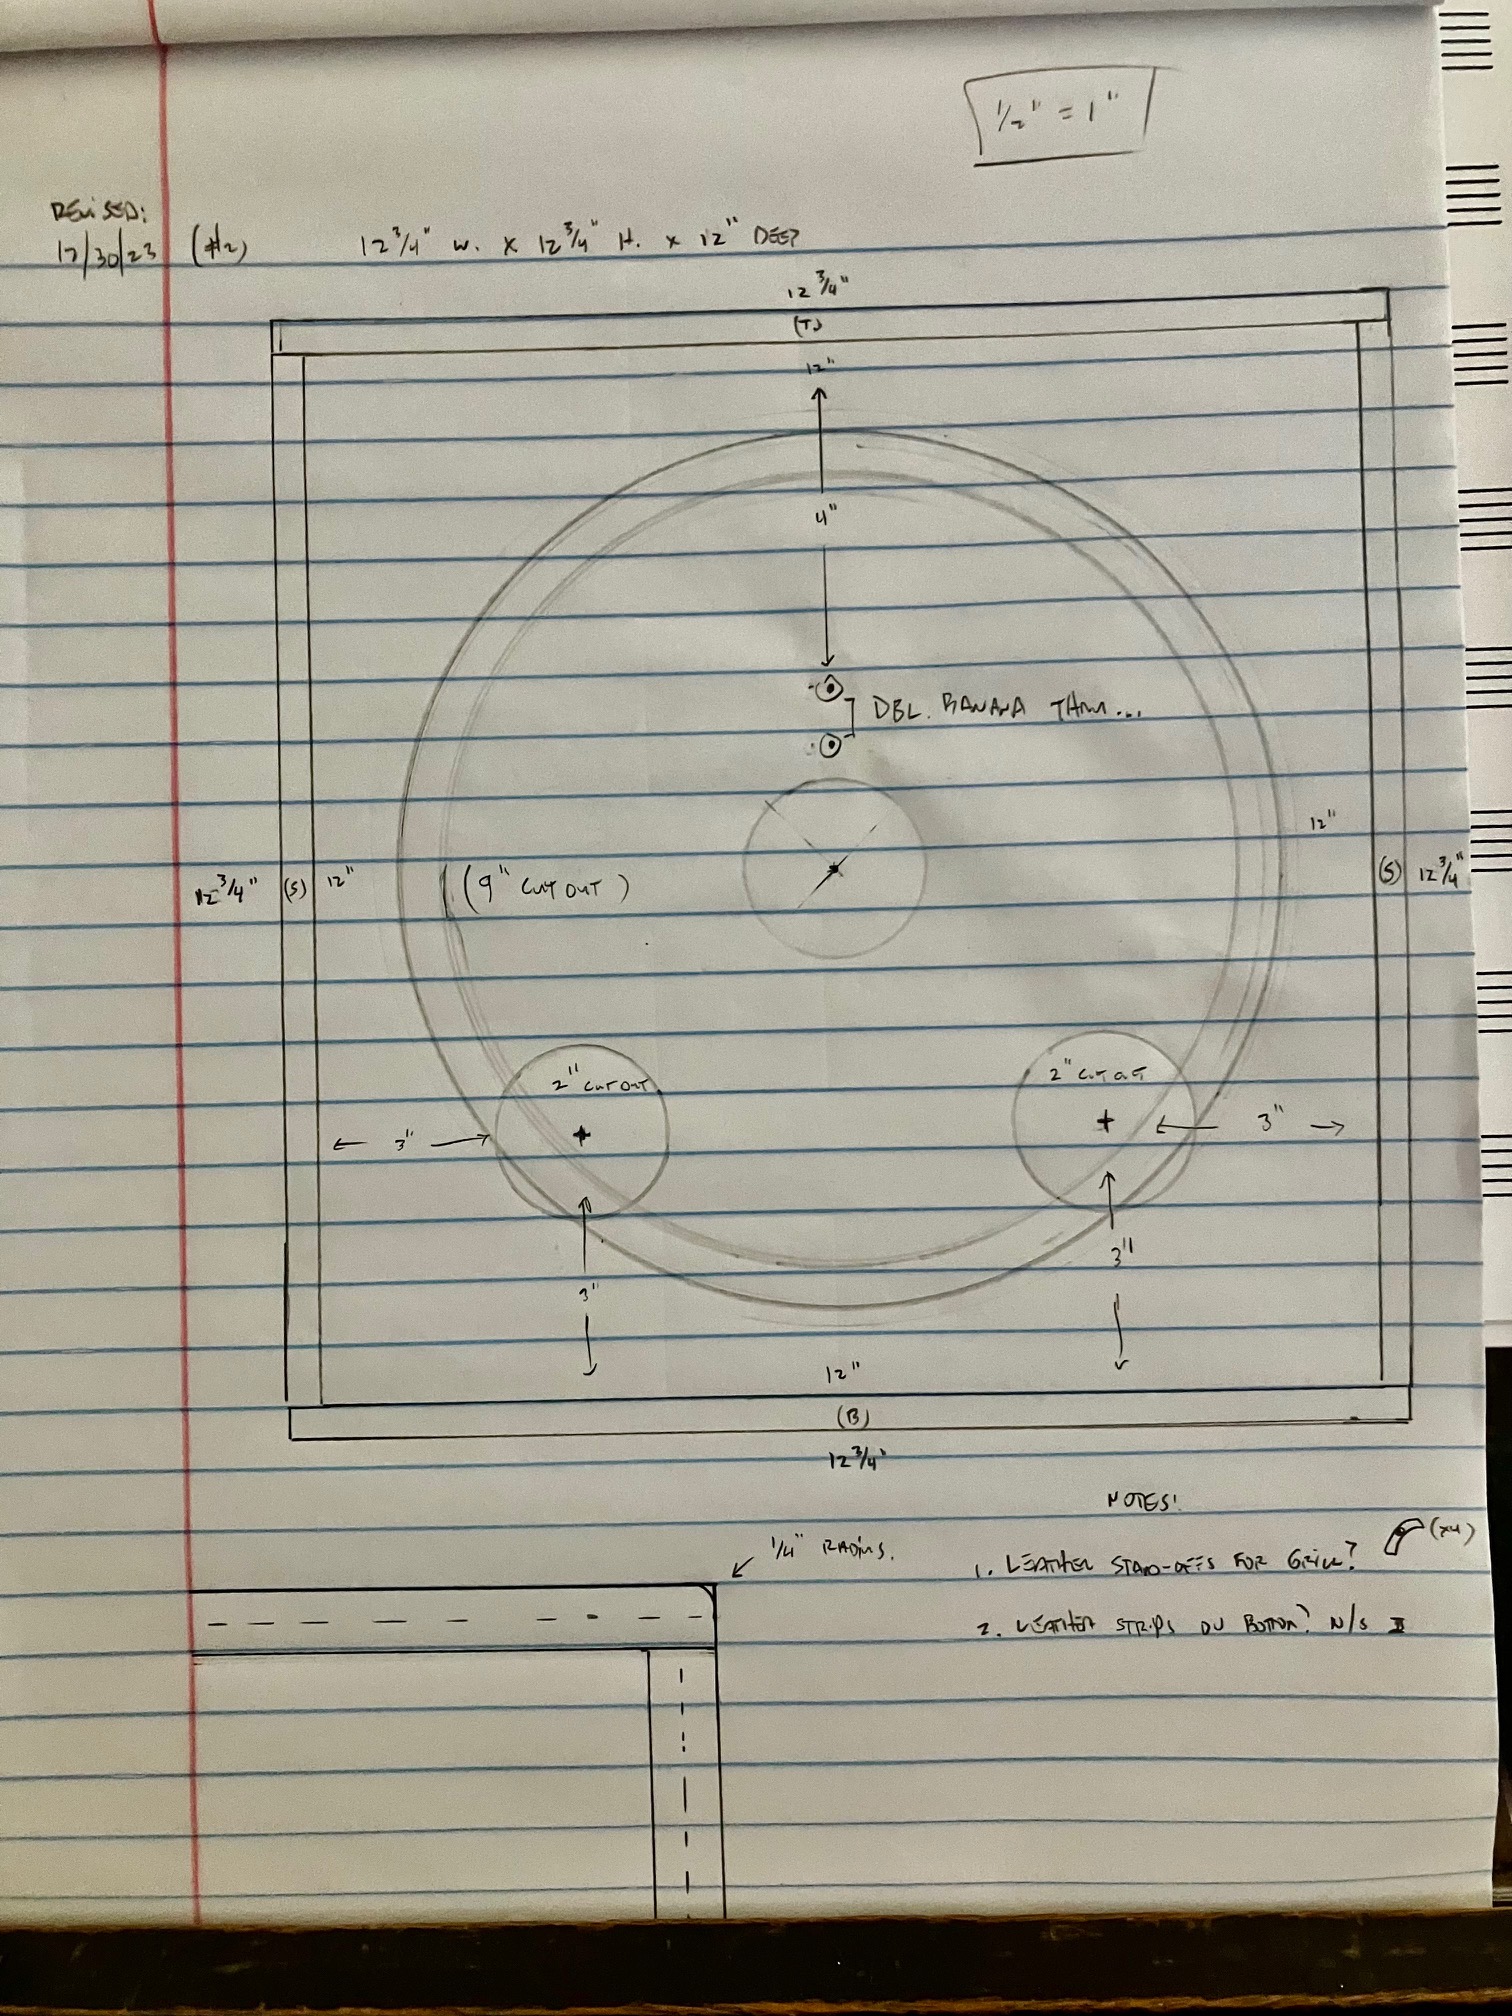 1/2" = 1"
REVISED:
12/30/23 (#2) 12 3/4" W. x 12 3/4" H. x 12" DEEP
12 3/4"
(T)
12"
4"
DBL. BANANA
12"
12 3/4" (S) 12" (9" CUT OUT) (S) 12 3/4"
2" CUT OUT 2" CUT OUT
3" 3"
3" 3"
12"
(B)
12 3/4"
NOTES:
1/4" RADIUS. (x4)
1. LEATHER STAND-OFFS FOR GRILL?
2. LEATHER STRIPS ON BOTTOM? N/S